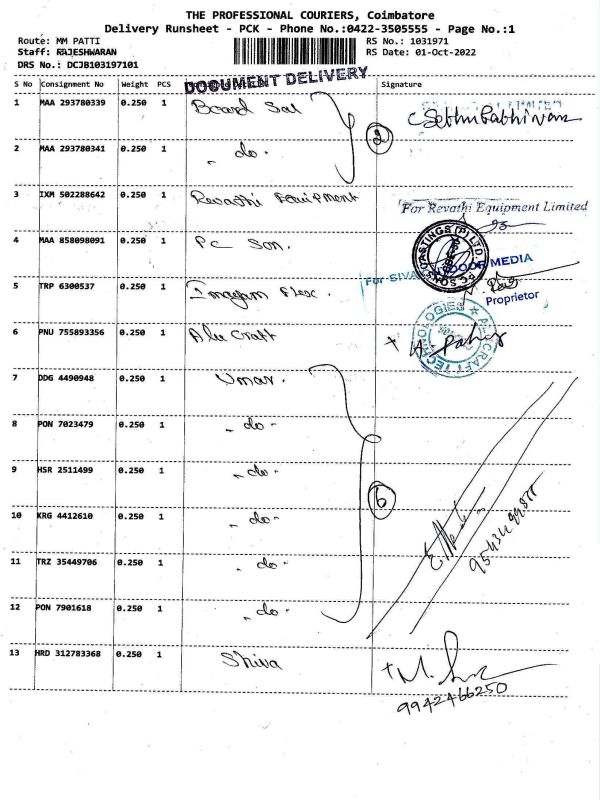 THE PROFESSIONAL COURIERS, Coimbatore
Delivery Runsheet - PCK - Phone No.:0422-3505555 - Page No.:1
Route: MM PATTI RS No.: 1031971
Staff: RAJESHWARAN RS Date: 01-Oct-2022
DRS No.: DCJB103197101
DOCUMENT DELIVERY
S No Consignment No Weight PCS Signature
1 MAA 293780339 0.250 1
2 MAA 293780341 0.250 1 - do -
2
3 IXM 502288642 0.250 1 Revathi Equipment
For Revathi Equipment Limited
4 MAA 858098091 0.250 1 PC Son.
5 TRP 6300537 0.250 1 Imayam Flex.
Proprietor
6 PNU 755893356 0.250 1 Alu Craft
7 DDG 4490948 0.250 1 Umar.
8 PON 7023479 0.250 1 - do -
9 HSR 2511499 0.250 1 - do -
6
10 KRG 4412610 0.250 1 - do -
11 TRZ 35449706 0.250 1 - do -
12 PON 7901618 0.250 1 - do -
13 HRD 312783368 0.250 1 Shiva
9942466250